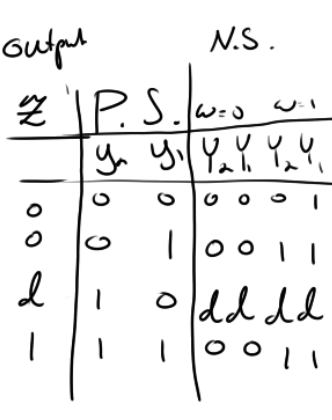 Output N.S.
Z P. S. w=0 w=1
y₂ y₁ Y₂ Y₁ Y₂ Y₁
0 0 0 0 0 0 1
0 0 1 0 0 1 1
d 1 0 d d d d
1 1 1 0 0 1 1